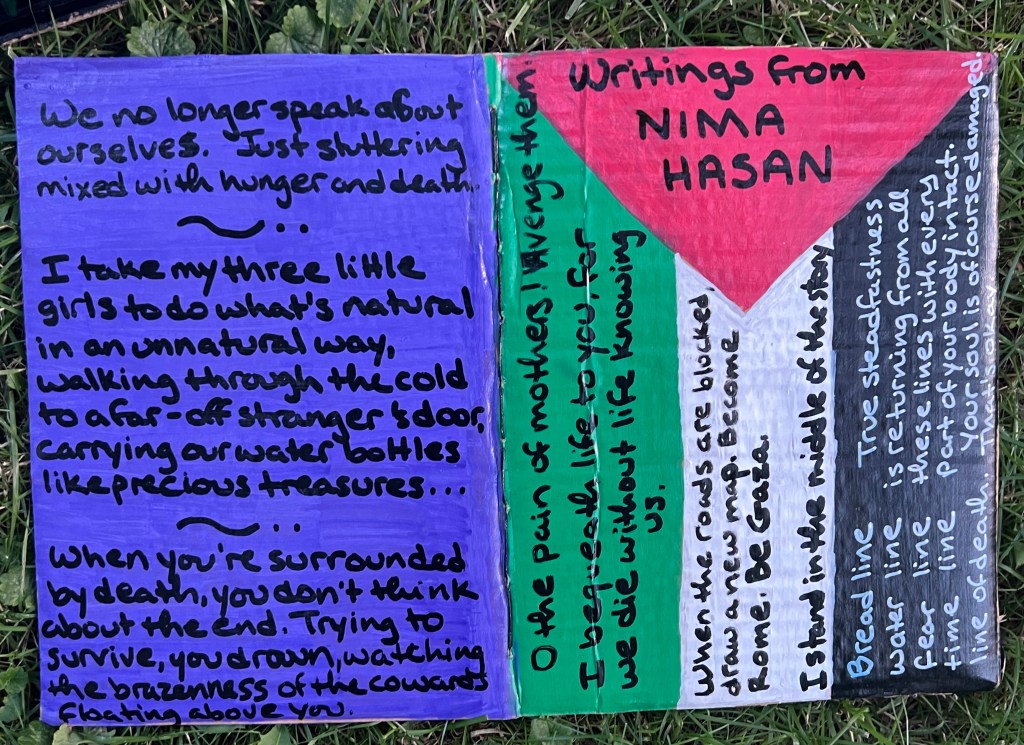 We no longer speak about
ourselves. Just stuttering
mixed with hunger and death.
I take my three little
girls to do what's natural
in an unnatural way,
walking through the cold
to a far-off stranger's door,
carrying our water bottles
like precious treasures...
When you're surrounded
by death, you don't think
about the end. Trying to
survive, you drown, watching
the brazenness of the cowards
floating above you.
Writings from
NIMA
HASAN
O the pain of mothers! Avenge them.
I bequeath life to you, for
we die without life knowing
us.
When the roads are blocked,
draw a new map. Become
Rome. Be Gaza.
I stand in the middle of the story
Bread line
water line
fear line
time line
line of death.
True steadfastness
is returning from all
these lines with every
part of your body intact.
Your soul is of course damaged.
That's okay.